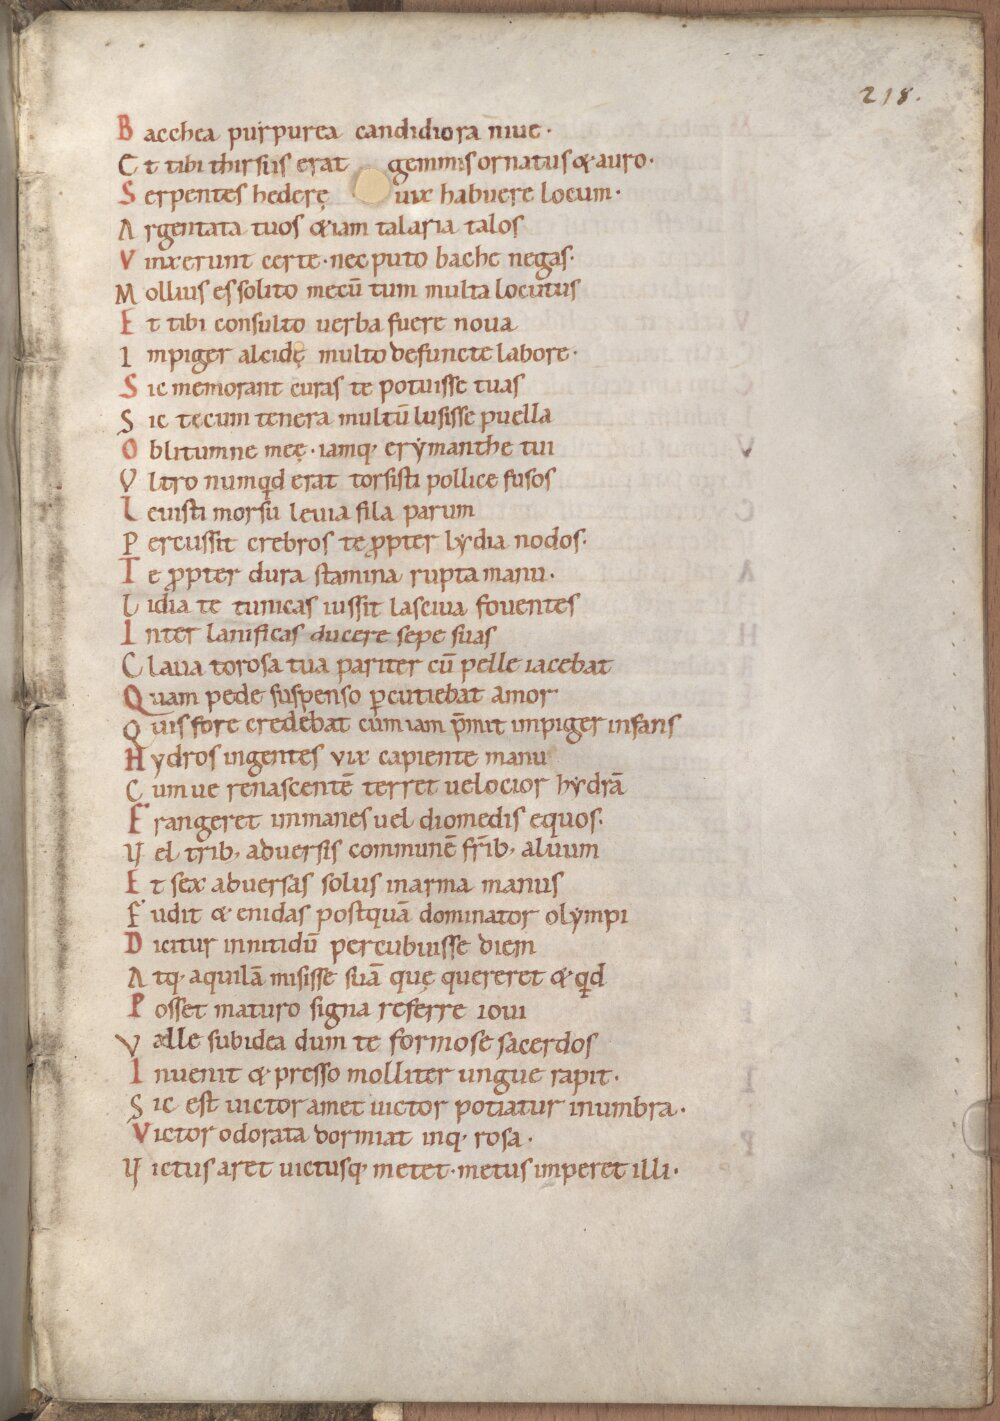 218.
Bacchea purpurea candidiora niue·
Et tibi thirsus erat gemmis ornatus & auro·
Serpentes hederę uix habuere locum·
Argentata tuos & iam talaria talos
Vinxerunt certe· nec puto bache negas·
Mollius es solito mecū tum multa locutus
Et tibi consulto uerba fuere noua
Impiger alcidę multo defuncte labore·
Sic memorant curas te potuisse tuas
Sic tecum tenera multū lusisse puella
Oblitumne meę· iamq; erẏmanthe tui
Vltro numqd erat torsisti pollice fusos
Leuisti morsu leuia fila parum
Percussit crebros te ꝓpter lẏdia nodos·
Te ꝓpter dura stamina rupta manu·
Lidia te tunicas iussit lasciua fouentes
Inter lanificas ducere sepe suas
Claua torosa tua pariter cū pelle iacebat
Quam pede suspenso ꝑcutiebat amor
Quis fore credebat cum iam p̄mit impiger infans
Hydros ingentes vix capiente manu
Cum ue renascentē terret uelocior hẏdrā
Frangeret immanes uel diomedis equos·
Vel trib; aduersis communē fr̄ib; aluum
Et sex aduersas solus in arma manus
Fudit & enidas postquā dominator olẏmpi
Dicitur in nitidū percubuisse diem
Atq; aquilā misisse suā quę quereret & qd
Posset maturo signa referre ioui
Valle sub idea dum te formose sacerdos
Inuenit & presso molliter ungue rapit·
Sic est uictor amet uictor potiatur in umbra·
Victor odorata dormiat inq; rosa·
Victus aret uictusq; metet· metus imperet illi·